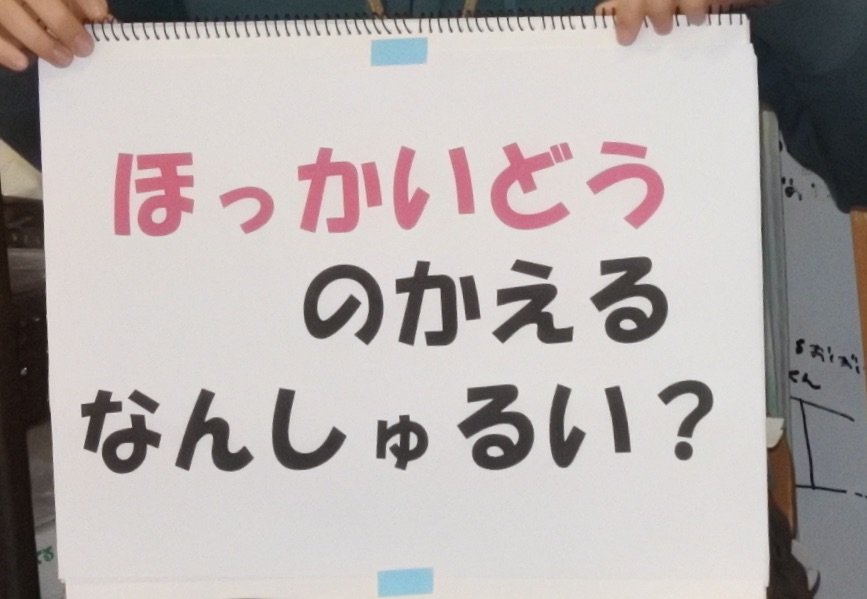 ほっかいどう
のかえる
なんしゅるい？